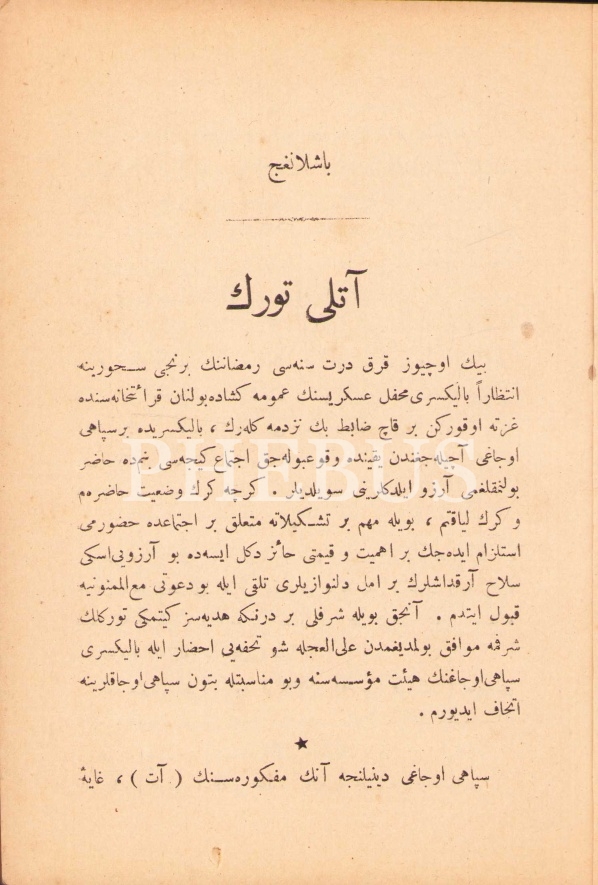 باشلانغج
آتلى تورك
بيك اوچيوز قرق درت سنه‌سى رمضاننك برنجى سحورينه
انتظاراً باليكسرى محفل عسكريسنك عمومه كشاده بولنان قرائتخانه‌سنده
غزته اوقوركن بر قاچ ضابط بك نزدمه كله‌رك ، باليكسريده بر سپاهى
اوجاغى آچيله‌جغندن يقينده وقوعبوله‌جق اجتماع كيجه‌سى بنم‌ده حاضر
بولنمقلغمى آرزو ايلدكلرينى سويلديلر . كرچه كرك وضعيت حاضره‌م
و كرك لياقتم ، بويله مهم بر تشكيلاته متعلق بر اجتماعده حضورمى
استلزام ايده‌جك بر اهميت و قيمتى حائز دكل ايسه‌ده بو آرزويى اسكى
سلاح آرقداشلرك بر امل دلنوازيلرى تلقى ايله بو دعوتى مع‌الممنونيه
قبول ايتدم . آنجق بويله شرفلى بر درنكه هديه‌سز كيتمكى توركلك
شرفنه موافق بولمديغمدن على‌العجله شو تحفه‌يى احضار ايله باليكسرى
سپاهى اوجاغنك هيئت مؤسسه‌سنه وبو مناسبتله بتون سپاهى اوجاقلرينه
اتحاف ايديورم .
★
سپاهى اوجاغى دينيلنجه آنك مفكوره‌سنك ( آت ) ، غايۀ
PHEBUS